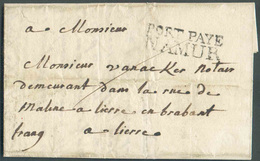 a Monsieur
PORT PAYE
NAMUR
Monsieur vanacker notair
demeurant dans la rue de
maline a lierre en brabant
franq a lierre